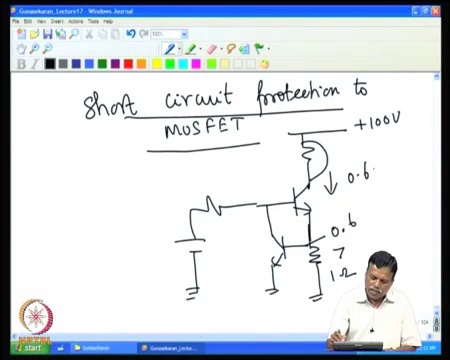 Gunasekaran_Lecture17 - Windows Journal
File Edit View Insert Actions Tools Help
100%
B I
Short circuit protection to
MOSFET
+100V
0.6
0.6
1Ω
NPTEL
start
Gunasekaran
Gunasekaran_Lectu...